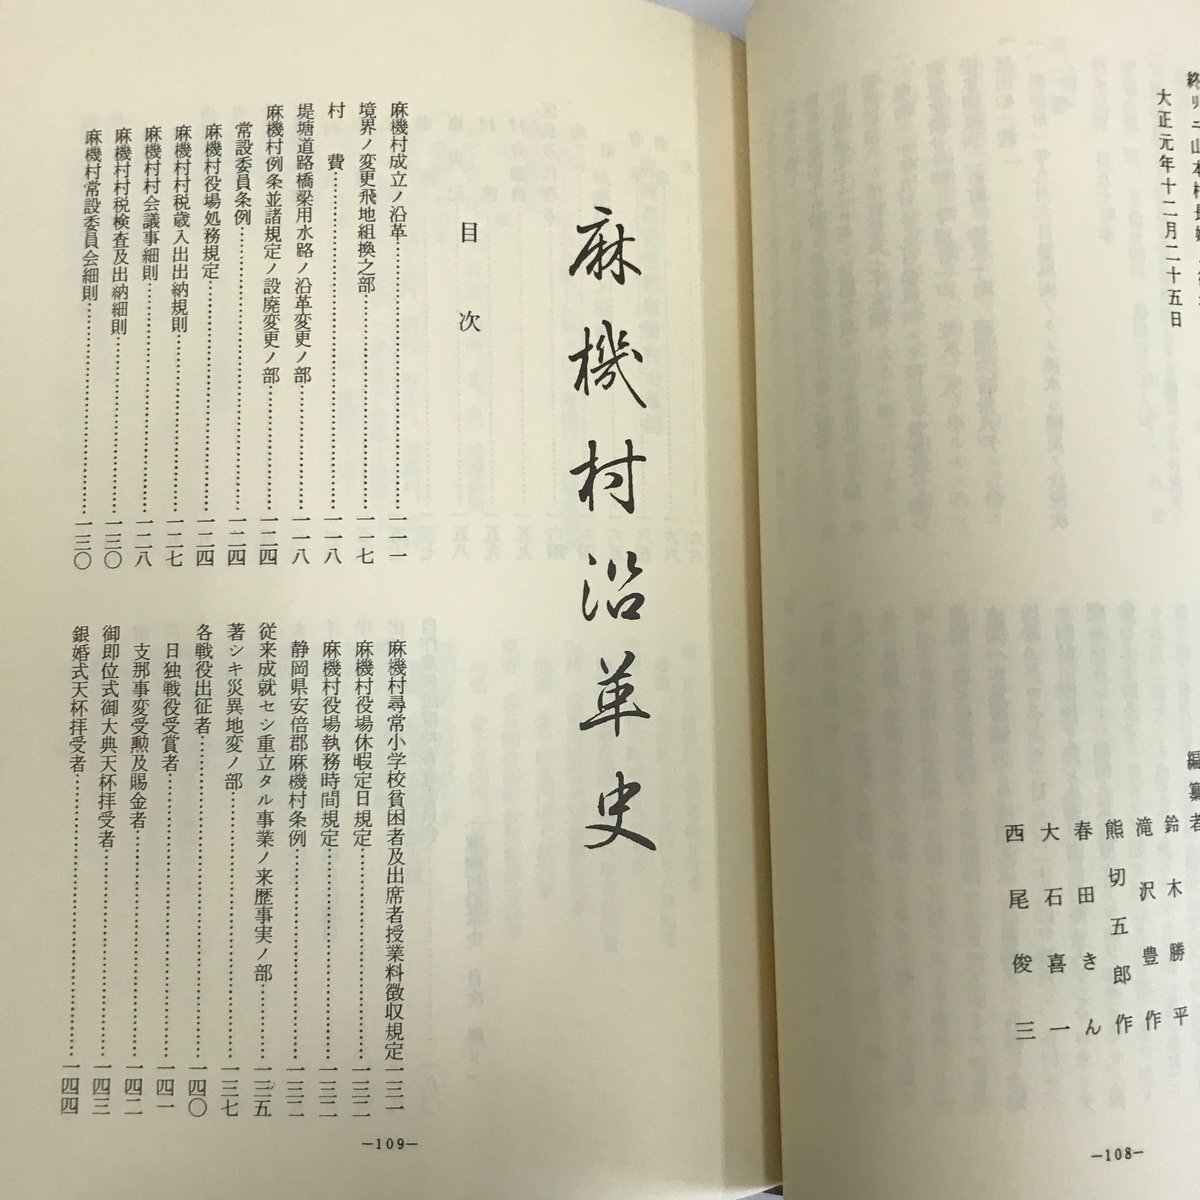 大正元年十二月二十五日
編纂者
鈴木勝平
滝沢豊作
熊切五郎作
春田きん
大石喜一
西尾俊三
―108―
麻機村沿革史
目次
麻機村成立ノ沿革…………一一一
境界ノ変更飛地組換之部…………一一七
村費…………一一八
堤塘道路橋梁用水路ノ沿革変更ノ部…………一一八
麻機村例条並諸規定ノ設廃変更ノ部…………一二四
常設委員条例…………一二四
麻機村役場処務規定…………一二四
麻機村村税歳入出出納規則…………一二七
麻機村村会議事細則…………一二八
麻機村村税検査及出納細則…………一三〇
麻機村常設委員会細則…………一三〇
麻機村尋常小学校貧困者及出席者授業料徴収規定 一三一
麻機村役場休暇定日規定…………一三二
麻機村役場執務時間規定…………一三二
静岡県安倍郡麻機村条例…………一三二
従来成就セシ重立タル事業ノ来歴事実ノ部…………一三五
著シキ災異地変ノ部…………一三七
各戦役出征者…………一四〇
日独戦役受賞者…………一四一
支那事変受勲及賜金者…………一四二
御即位式御大典天杯拝受者…………一四三
銀婚式天杯拝受者…………一四四
―109―